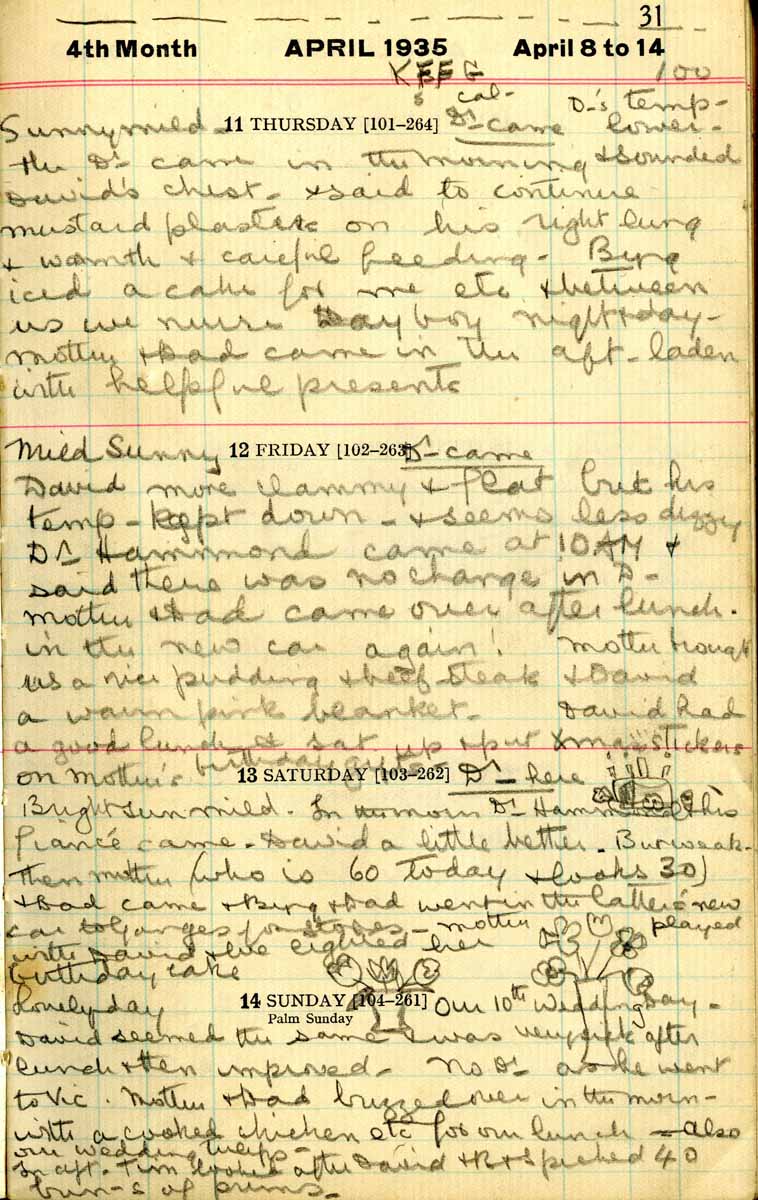 31
4th Month APRIL 1935 April 8 to 14
100
cal-
D-'s temp-
Sunny mild - 11 THURSDAY [101–264] Dr came lower -
the Dr came in the morning & sounded
David's chest - & said to continue
mustard plasters on his right lung
& warmth & careful feeding - Byng
iced a cake for me etc & between
us we nurse Day boy night & day -
mother & Dad came in the aft - laden
with helpful presents
Mild Sunny 12 FRIDAY [102–263] Dr came
David more clammy & flat but his
temp - kept down - & seems less dizzy
Dr Hammond came at 10 AM &
said there was no change in D -
mother & Dad came over after lunch.
in the new car again! Mother brought
us a nice pudding & beef-steak & David
a warm pink blanket - David had
a good lunch & sat up & put Xmas stickers
on Mother's birthday gifts -
13 SATURDAY [103–262] Dr here
Bright sun mild. In the morn Dr Hammond & his
fiancé came - David a little better. But weak -
Then mother (who is 60 today & looks 30)
& Dad came & Byng & Dad went in the latter's new
car to Ganges for stores - mother played
with David & we lighted her
birthday cake
Lovely day 14 SUNDAY [104–261] Our 10th Wedding Day -
Palm Sunday
David seemed the same & was very sick after
lunch & then improved - No Dr as he went
to Vic. Mother & Dad buzzed over in the morn -
with a cooked chicken etc for our lunch - also
our wedding tulips -
In aft - Tim looked after David & B & I picked 40
bun-s of prims -